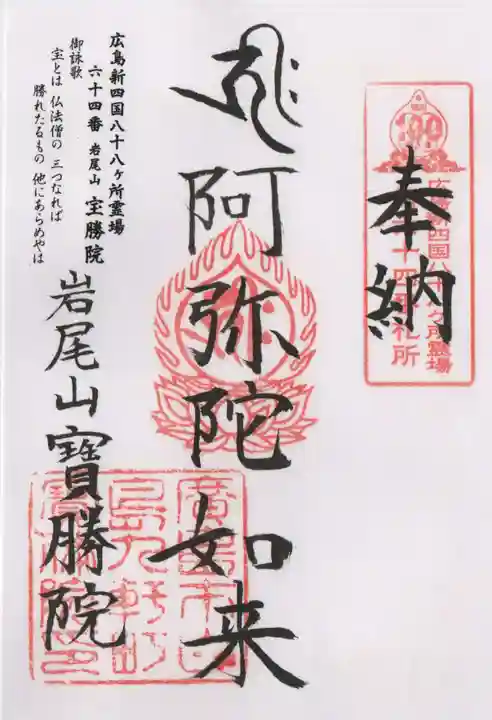 奉納
広島新四国八十八ヶ所霊場
六十四番札所
阿弥陀如来
広島新四国八十八ヶ所霊場
六十四番 岩尾山 宝勝院
御詠歌
宝とは 仏法僧の 三つなれば
勝れたるもの 他にあらめやは
岩尾山寶勝院